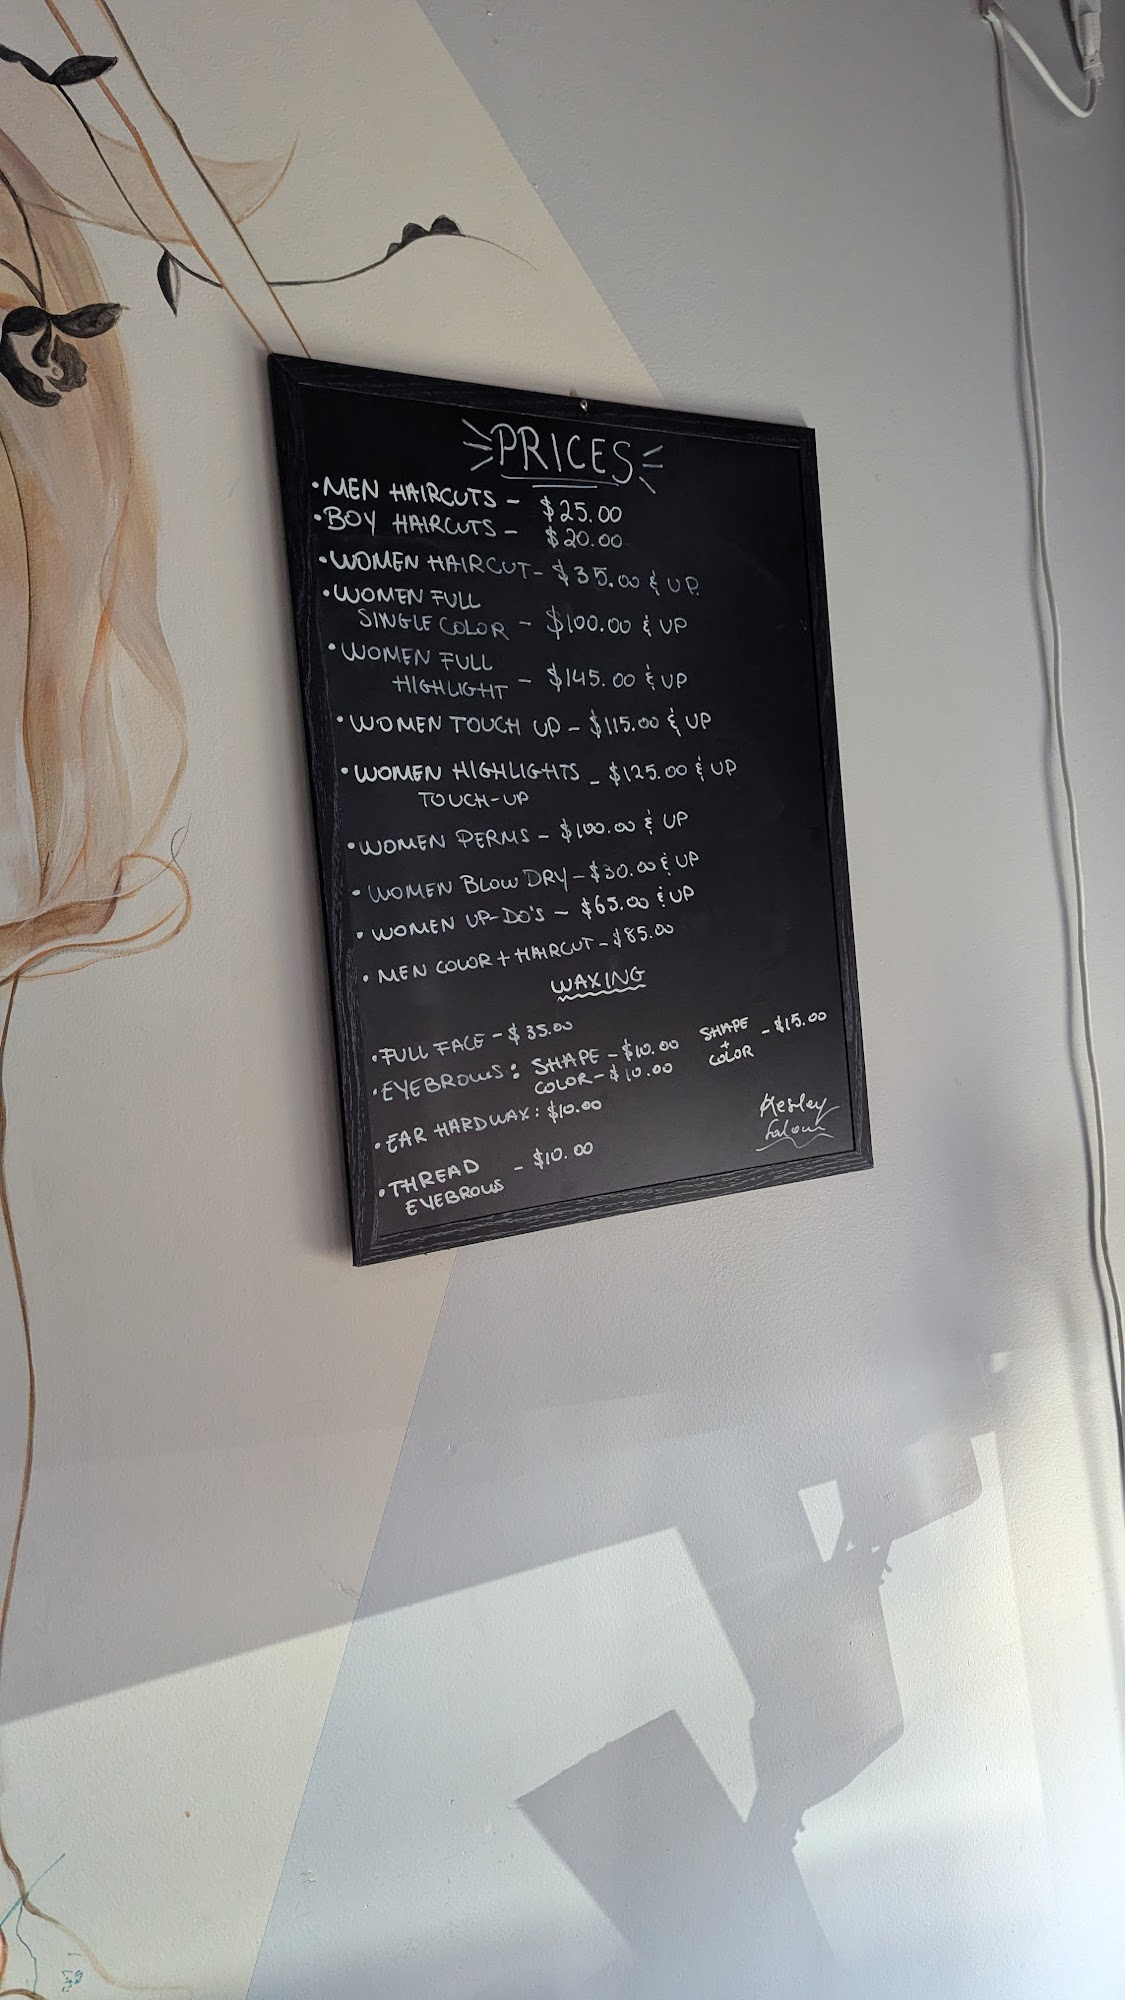 PRICES
• MEN HAIRCUTS - $25.00
• BOY HAIRCUTS - $20.00
• WOMEN HAIRCUT - $35.00 & UP
• WOMEN FULL
SINGLE COLOR - $100.00 & UP
• WOMEN FULL
HIGHLIGHT - $145.00 & UP
• WOMEN TOUCH UP - $115.00 & UP
• WOMEN HIGHLIGHTS - $125.00 & UP
TOUCH-UP
• WOMEN PERMS - $100.00 & UP
• WOMEN BLOW DRY - $30.00 & UP
• WOMEN UP-DO'S - $65.00 & UP
• MEN COLOR + HAIRCUT - $85.00
WAXING
• FULL FACE - $35.00
• EYEBROWS: SHAPE - $10.00
COLOR - $10.00
SHAPE + COLOR - $15.00
• EAR HARDWAX: $10.00
• THREAD - $10.00
EYEBROWS
Salon